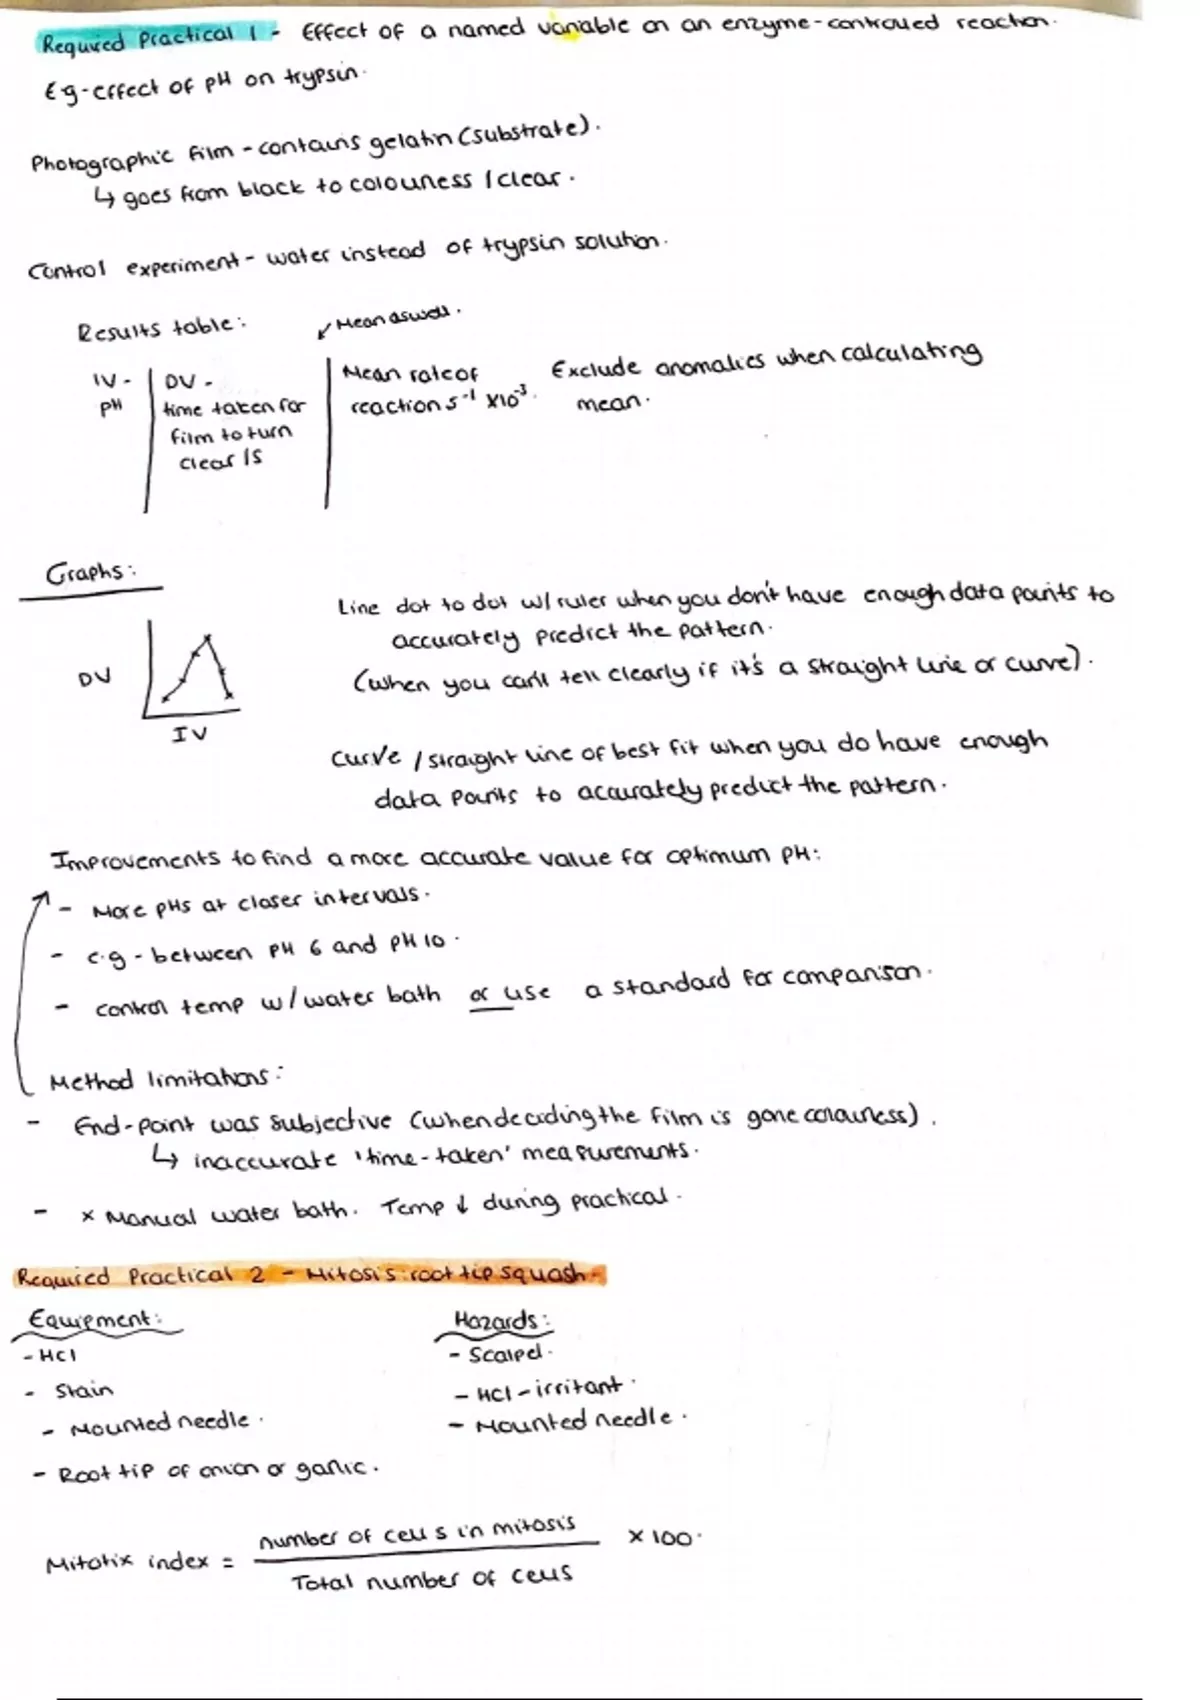 Required Practical 1 - Effect of a named variable on an enzyme-controlled reaction.
Eg - effect of pH on trypsin.
Photographic film - contains gelatin (substrate).
↳ goes from black to colourless / clear.
Control experiment - water instead of trypsin solution.
Results table:
↙ Mean aswell.
IV -
pH
DV -
time taken for
film to turn
clear /s
Mean rate of
reaction s⁻¹ x10⁻³.
Exclude anomalies when calculating
mean.
Graphs:
DV
IV
Line dot to dot w/ ruler when you don't have enough data points to
accurately predict the pattern.
(when you can't tell clearly if it's a straight line or curve).
Curve / straight line of best fit when you do have enough
data points to accurately predict the pattern.
Improvements to find a more accurate value for optimum pH:
- More pHs at closer intervals.
- e.g - between pH 6 and pH 10.
- control temp w/ water bath or use a standard for comparison.
Method limitations:
- End-point was subjective (when deciding the film is gone colourless).
↳ inaccurate 'time-taken' measurements.
- x Manual water bath. Temp ↓ during practical.
Required Practical 2 - Mitosis: root tip squash -
Equipment:
- HCl
- Stain
- Mounted needle.
- Root tip of onion or garlic.
Hazards:
- Scalpel.
- HCl - irritant.
- Mounted needle.
Mitotix index = number of cells in mitosis x 100.
Total number of cells